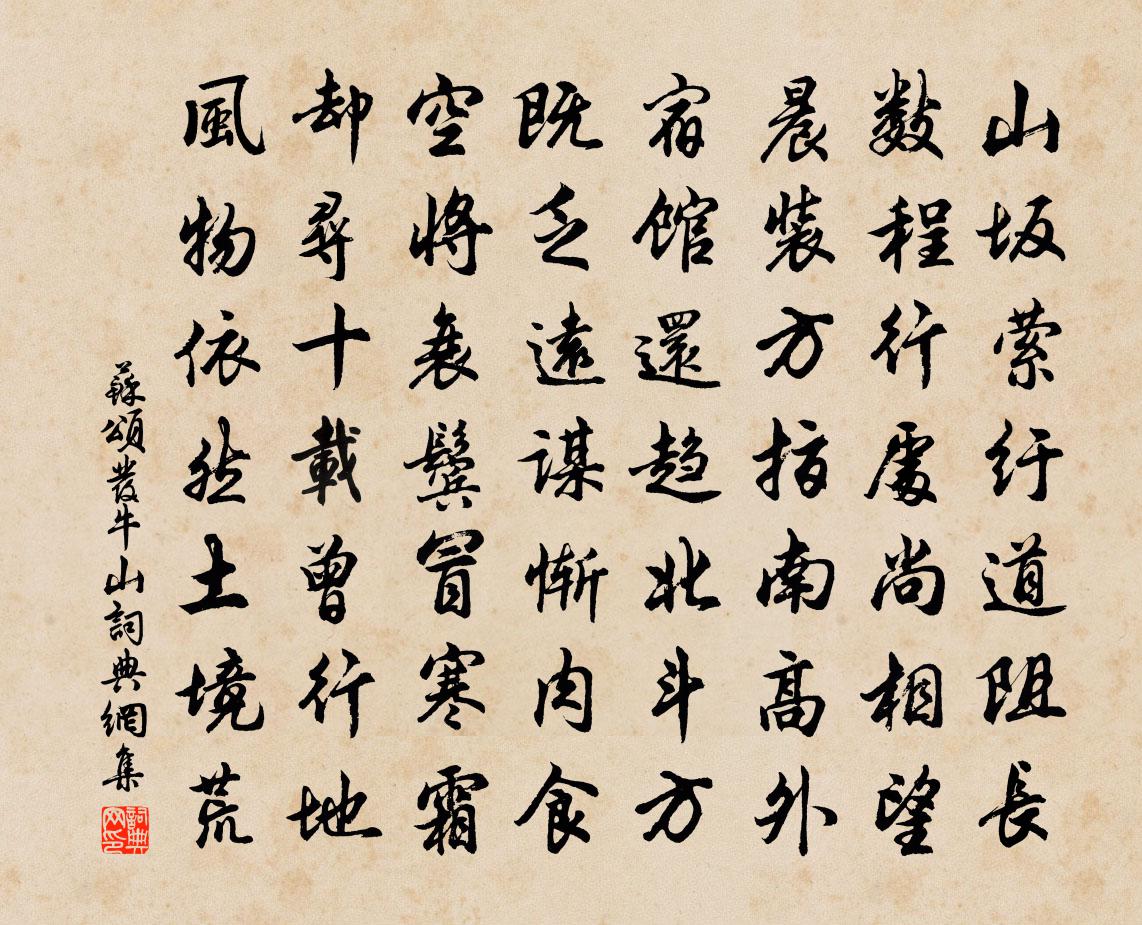 山坂萦纡道阻長
數程行處尚相望
晨裝方指南高外
宿馆還趋北斗方
既乏遠謀慚肉食
空將衰鬓冒寒霜
却尋十載曾行地
風物依然土境荒
蘇頌發牛山詞典網集
詞典网印